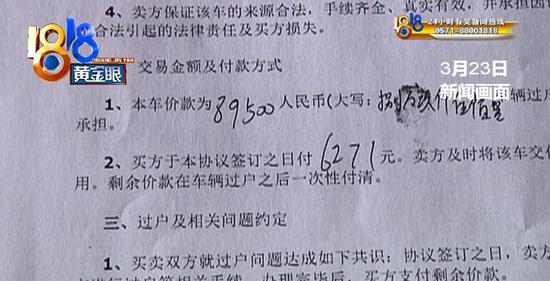 4、卖方保证该车的来源合法，手续齐全、真实有效，并承担因
合法引起的法律责任及买方损失。
1818
HUANG JIN YAN
黄金眼
24小时有奖新闻热线
0571-88001818
3月23日
新闻画面
交易金额及付款方式
1、本车价款为89500人民币（大写：捌万玖仟伍佰 辆过户
承担。
2、买方于本协议签订之日付6271元。卖方及时将该车交
用。剩余价款在车辆过户之后一次性付清。
三、过户及相关问题约定
1、买卖双方就过户问题达成如下共识：协议签订之日，卖方
办理完毕后，买方支付剩余价款。